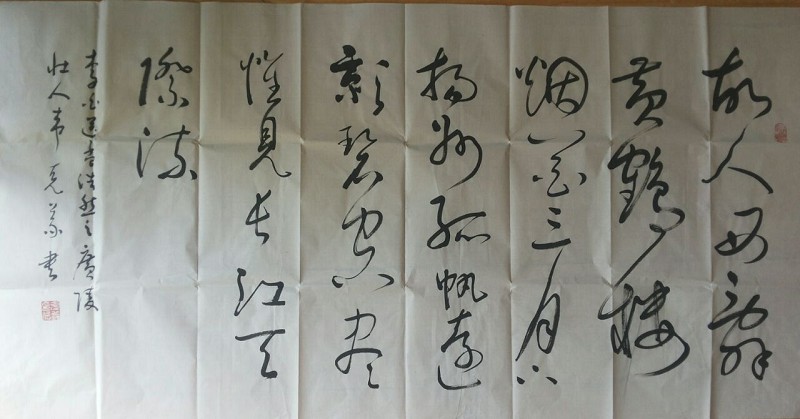 故人西辞
黄鹤楼
烟花三月下
扬州孤帆远
影碧空尽
惟见长江天
际流
李白送孟浩然之廣陵
壮人韦克书